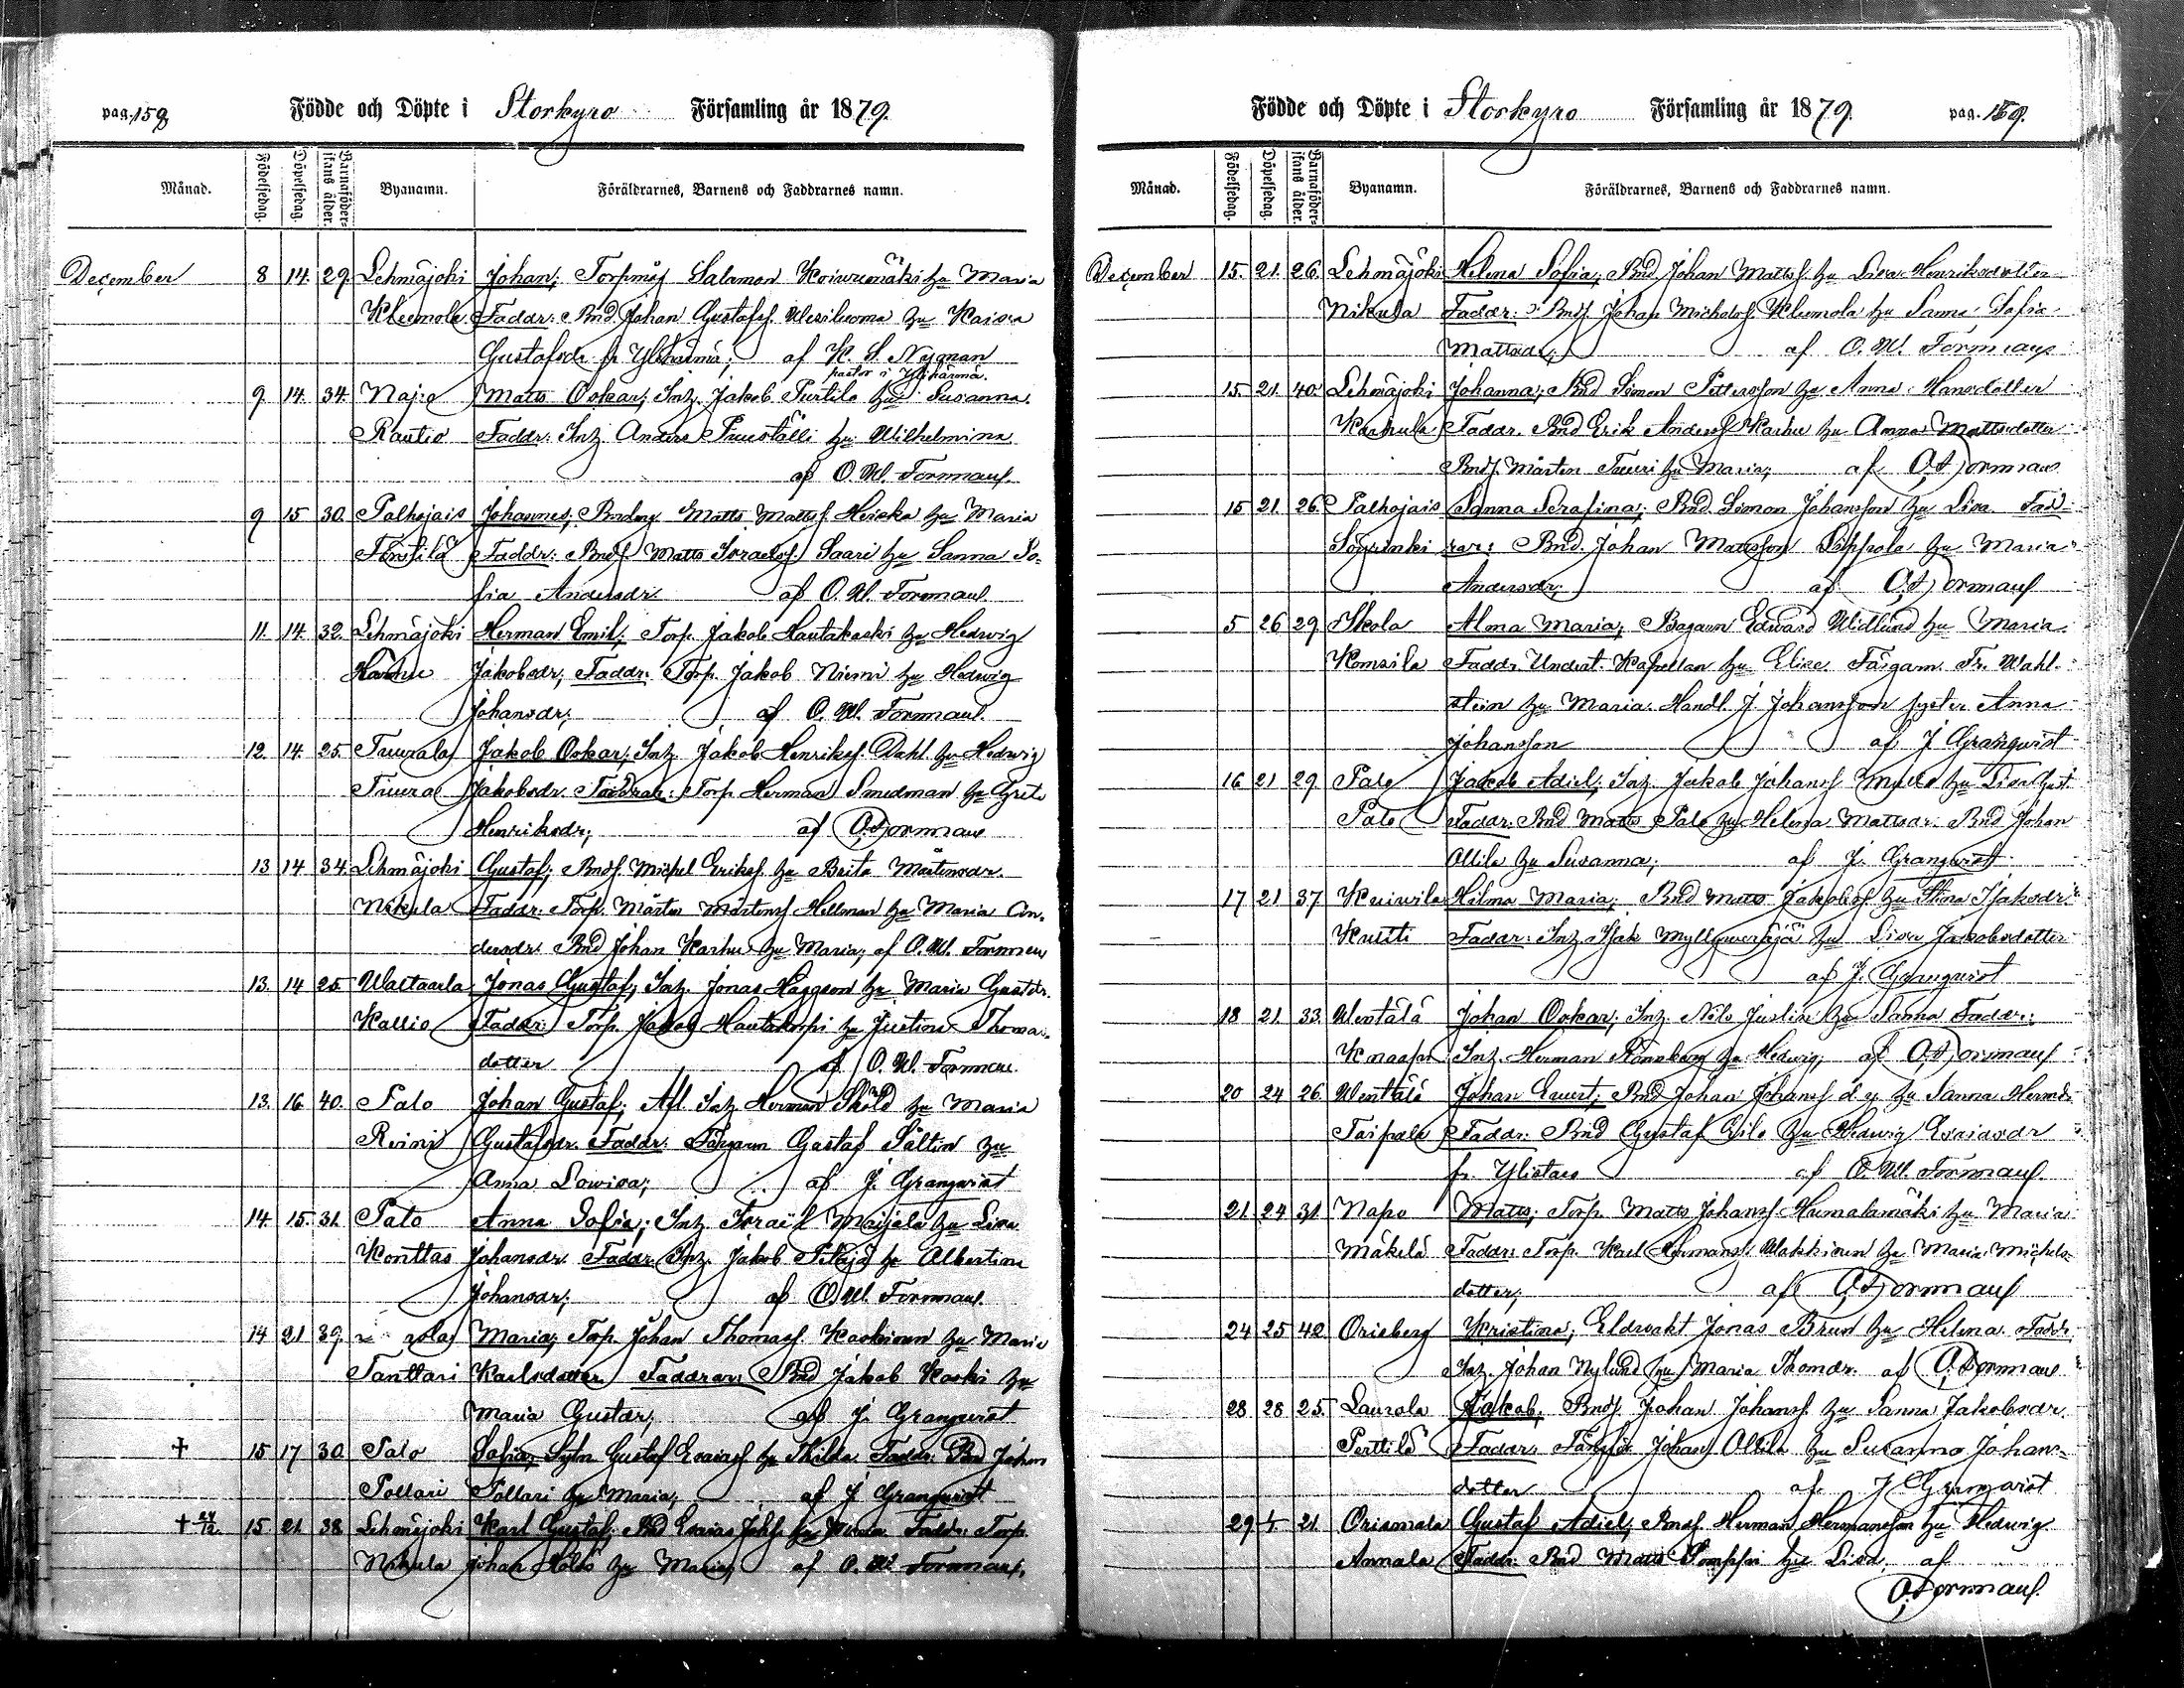 pag. 158
Födde och Döpte i Storkyro Församling år 1879.
Månad. Födelsedag. Döpelsedag. Barnaföderskans ålder. Byanamn. Föräldrarnes, Barnens och Faddrarnes namn.
December 8 14. 29. Lehmäjoki Johan; Salamon hu Maria
Kleemola Faddr: Bnd. Johan Gustafss. hu Kaisa
Gustafsdr fr Ylihärmä; af K. S. Nygman
pastor i Ylihärmä.
9. 14. 34. Matts Oskar; Inh. Jakob Turtila hu Susanna.
Rautio Faddr: Inh. Anders hu Wilhelmina
af O. W. Formans.
9 15 30. Palhojais Johannes; Matts Mattss. Heikka hu Maria
Faddr: Bnds. Matts Israelss. Saari hu Sanna So-
fia Andersdr af O. W. Forsmans.
11. 14. 32. Lehmäjoki Herman Emil; Torp. Jakob Hautakoski hu Hedwig
Jakobsdr, Faddr: Torp. Jakob Niemi hu Hedwig
Johansdr; af O. W. Formans.
12. 14. 25. Tuurala Jakob Oskar; Inh. Jakob Henrikss. Dahl hu Hedwig
Tuura Jakobsdr. Faddrar: Torp. Herman Smedman hu Greta
Henriksdr; af O. Formans
13 14 34. Lehmäjoki Gustaf; Bnds. Michel Erikss. hu Beita Mårtensdr.
Nikula Faddr. Torp. Mårten Mårtenss Hellman hu Maria An-
dersdr. Bnd Johan Karhu hu Maria; af O. W. Formans
13. 14 25. Waltaarla Jonas Gustaf; Inh. Jonas Häggson hu Maria Gustdr.
Kallio Faddr: Torp. Jakob hu Justina Thomas-
dotter af O. W. Formans.
13. 16. 40. Palo Johan Gustaf; Afl. Inh. Herman Sköld hu Maria
Reini Gustafsdr. Faddr: Färgaren Gustaf Sältin hu
Anna Lowisa; af J. Granqvist
14 15. 31. Palo Anna Sofia; Inh. Israël Maijala hu Lisa
Konttas Johansdr. Faddr: Inh. Jakob Pitkäjä hu Albertina
Johansdr; af O. W. Formans.
14 21 39. Maria; Torp. Johan Thomass. hu Maria
Tanttari Karlsdotter. Faddrar: Bnd Jakob Koski hu
Maria Gustdr; af J. Granqvist
† 15 17 30. Palo Sofia; Gustaf Esaiass hu Thilda Faddr: Bnd Johan
Pollari Pollari hu Maria; af J Granqvist
† 24/12. 15 21. 38 Lehmäjoki Karl Gustaf; Bnd Esaias Johss. hu Faddr: Torp.
Nikula Johan hu Maria; af O. W. Formans.
Födde och Döpte i Storkyro Församling år 1879. pag. 159.
Månad. Födelsedag. Döpelsedag. Barnaföderskans ålder. Byanamn. Föräldrarnes, Barnens och Faddrarnes namn.
December 15. 21. 26. Lehmäjoki Helena Sofia; Bnd. Johan Mattss. hu Lisa Henriksdotter
Nikula Faddr: Bnds. Johan Michelss. Kleemola hu Sanna Sofia
Mattsdr; af O. W. Formans
15. 21. 40. Lehmäjoki Johanna; Bnd Simon Pettersson hu Anna Hansdotter
Kaakula Faddr. Bnd Erik Anderss Karhu hu Anna Mattsdotter
Bnds. Mårten Tuuri hu Maria; af O. Formans
15 21. 26. Palhojais Sanna Serafina; Bnd. Simon Johansson hu Lisa. Fad-
Söyrinki rar: Bnd. Johan Mattsson Seppola hu Maria
Andersdr; af O. Formans
5 26 29 Skola Alma Maria; Bagaren Edward Widlund hu Maria.
Komsila Faddr. Kapellan hu Elise. Färgarn. Fr. Wahl-
stein hu Maria. Handl. J. Johansson syster Anna
Johansson af J Granqvist
16 21 29. Palo Jakob Adiel; Inh. Jakob Johanss Mylls hu Lisa Gust.
Palo Faddr. Bnd Matts Palo hu Helena Mattsdr. Bnd Johan
Ollila hu Susanna; af J. Granqvist
17 21 37 Kuiwila Hilma Maria; Bnd Matts Jakobss hu Stina Isaksdr.
Knuuti Faddr: Inh. Isak hu Lisa Jakobsdotter
af J. Granqvist
18 21. 33. Wentälä Johan Oskar; Inh. Nils Juslin hu Sanna Faddr:
Knaapi Inh. Herman Rönnberg hu Hedwig; af O. Formans
20 24 26 Wentälä Johan Evert; Bnd Johan Johanss d. y. hu Sanna Hermdr
Taipale Faddr: Bnd Gustaf hu Hedwig Esaiasdr
fr. Ylistaro af O. W. Formans
21. 24 31. Napo Matts; Torp. Matts Johanss Humalamäki hu Maria
Mäkelä Faddr: Torp. Karl Hermanss. hu Maria Michels-
dotter; af O. Formans
24 25 42 Orisberg Kristina; Eldvakt Jonas Brun hu Helena. Faddr.
Inh. Johan Nylund hu Maria Thomdr. af O. Formans
28 28 25. Laurola Jakob; Bnds. Johan Johanss. hu Sanna Jakobsdr.
Perttilä Faddr. Johan Ollila hu Susanna Johans-
dotter af J Granqvist
29. 4. 21. Orismala Gustaf Adiel; Bnds. Herman Hermansson hu Hedwig
Annala Faddr: Bnd Matts hu Lisa. af
O. Formans.